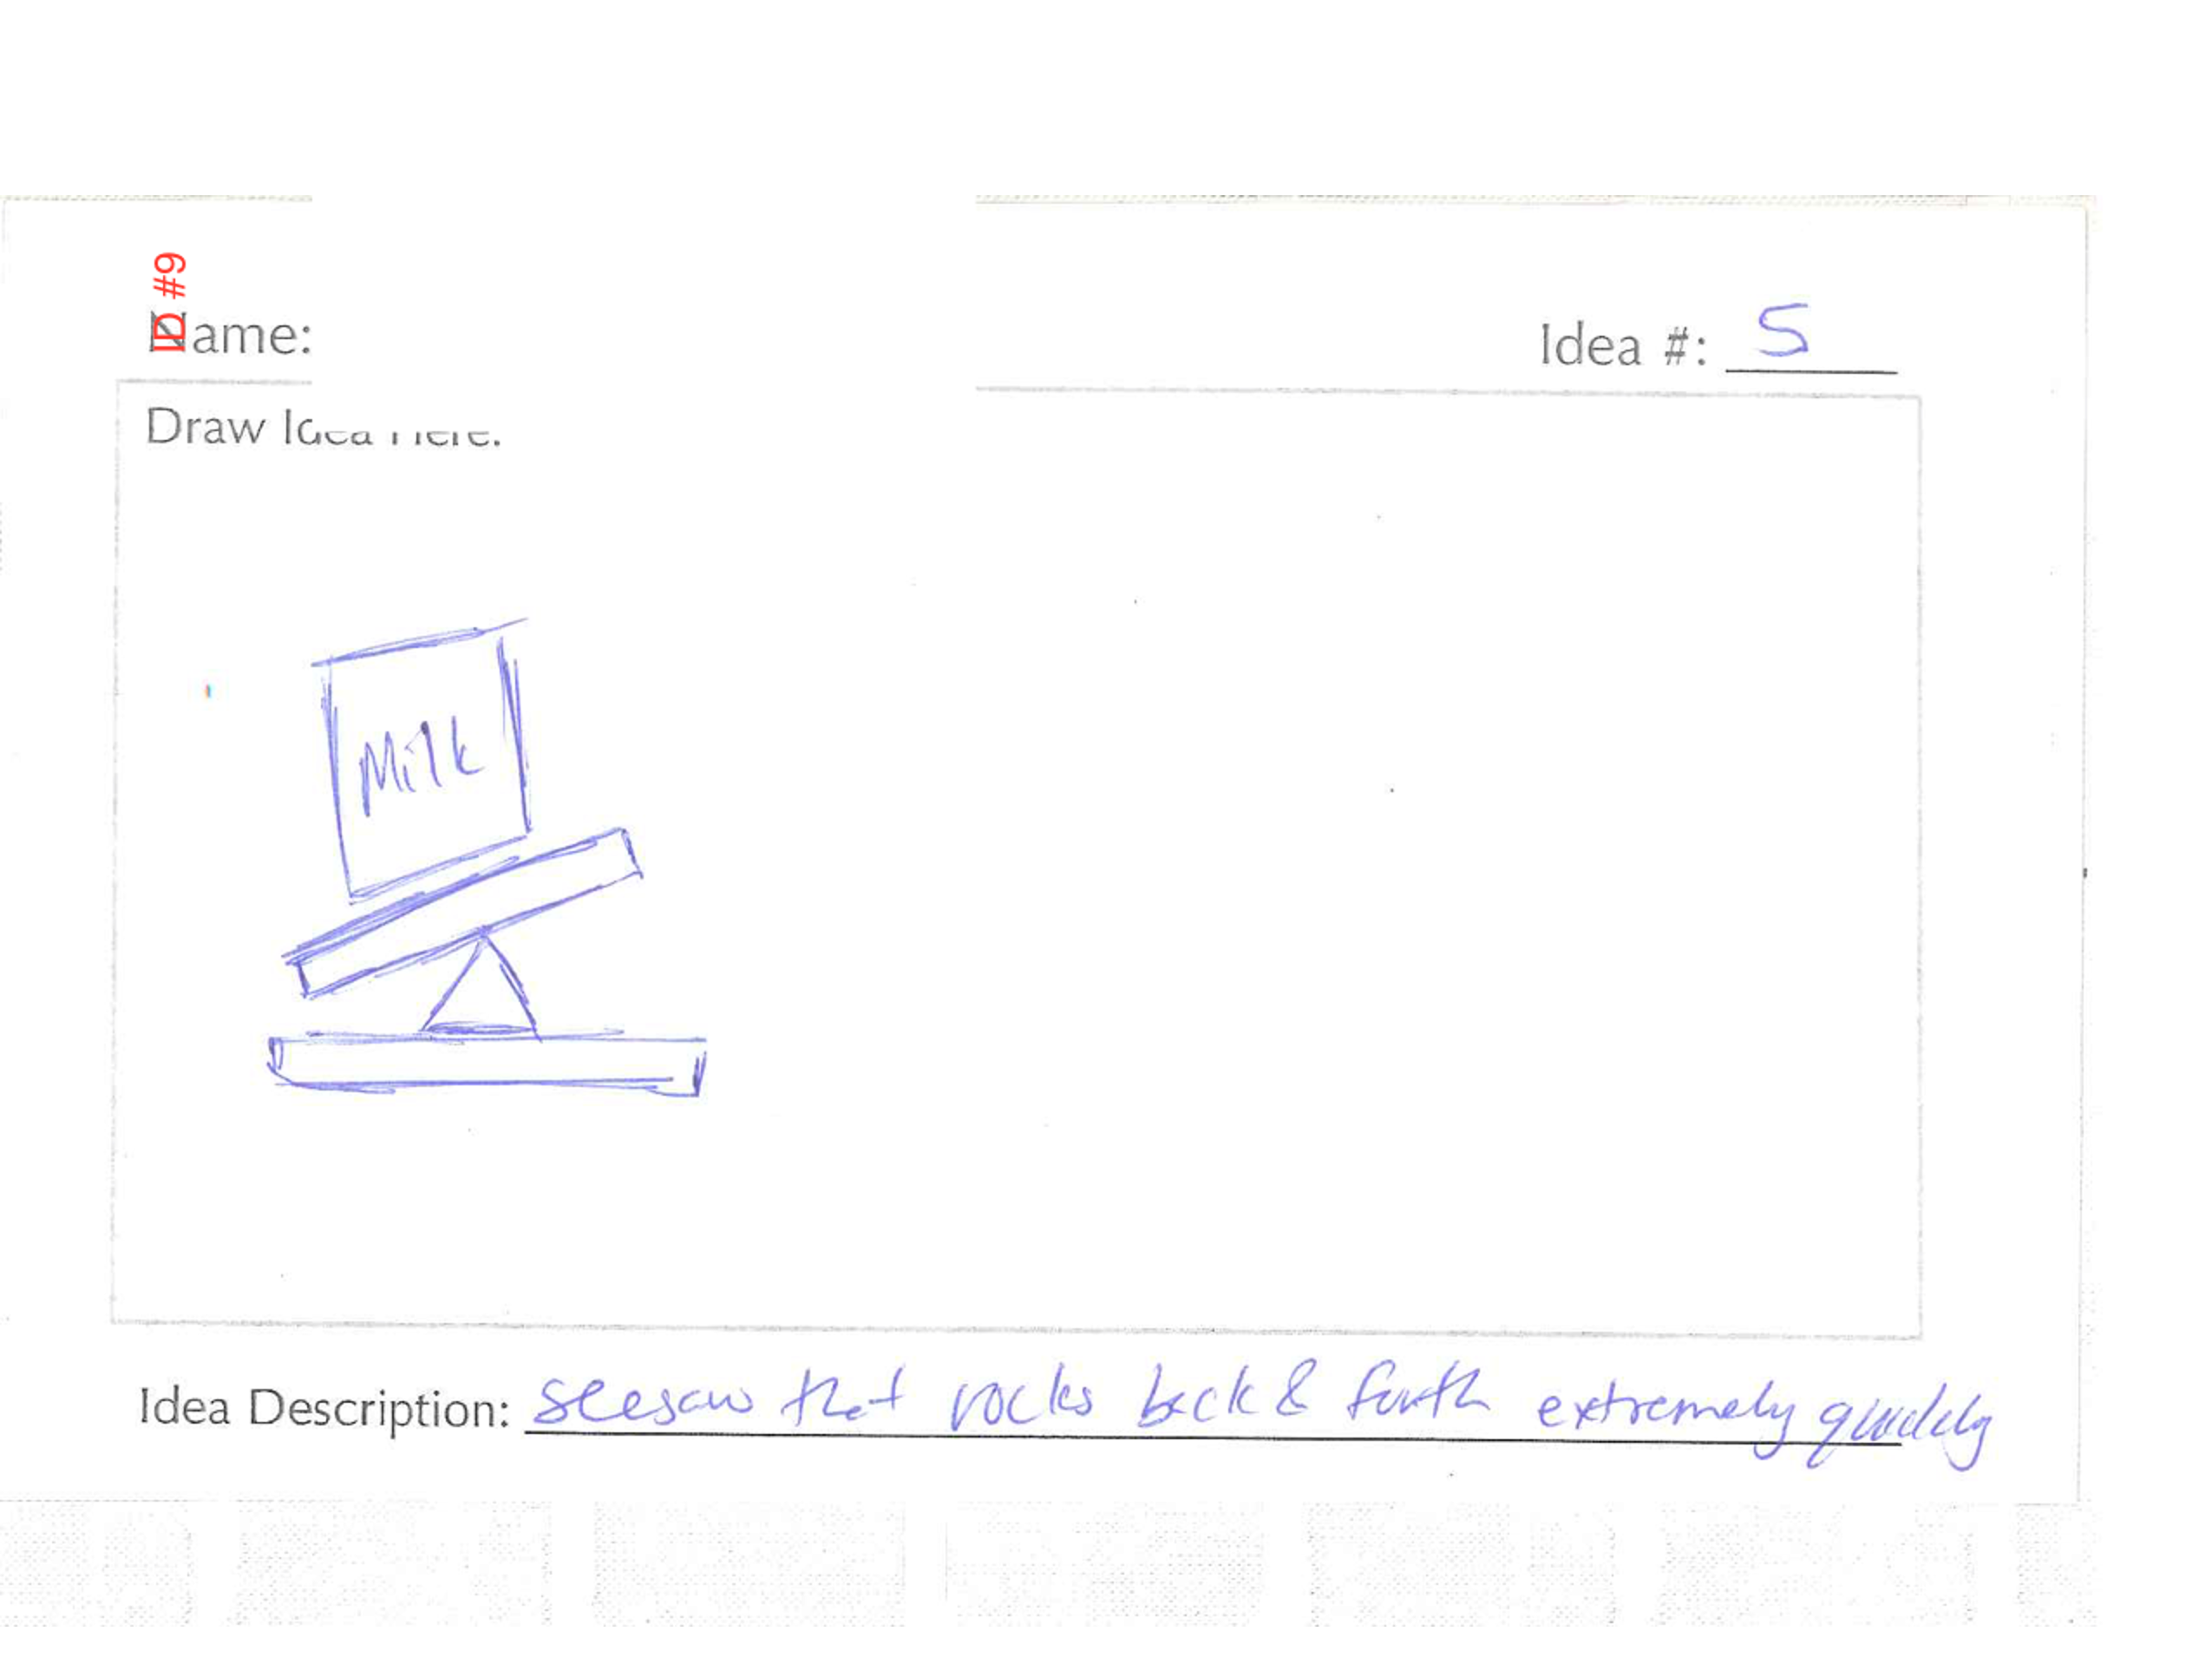 ID #9
Name:
Idea #: 5
Draw Idea Here:
Milk
Idea Description: seesaw that rocks back & forth extremely quickly